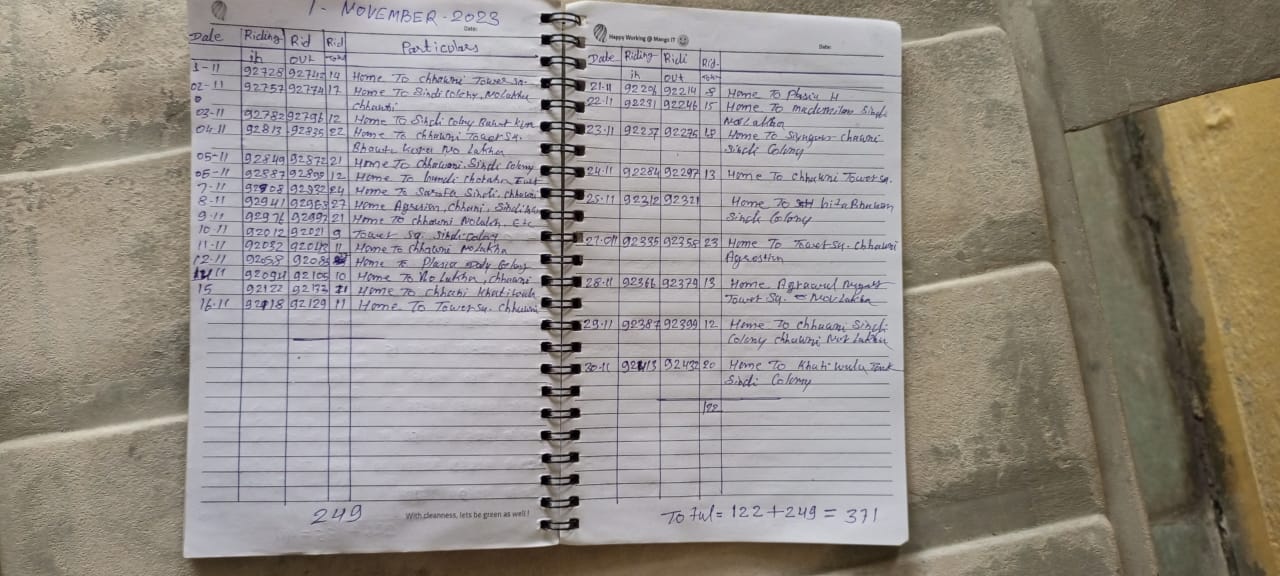 1 - NOVEMBER - 2023
Date:
Date Riding Rid Rid Particulars
in out Total
1-11 92728 92742 14 Home To Chhawni Tower Sq.
02-11 92757 92774 17 Home To Sindi Colony, No Lakha
chhawni
03-11 92782 92796 12 Home To Sindi Colony
04-11 92813 92835 22 Home To Chhawni Tower Sq.
No Lakha
05-11 92849 92872 21 Home To Chhawni, Sindi Colony
06-11 92887 92899 12 Home To
7-11 92908 92932 24 Home To Sarafa Sindi, Chhawni
8-11 92941 92963 27 Home Agrasion, Chhani, Sindi
9-11 92976 92997 21 Home To Chhawni, Nolakh, Etc
10-11 92012 92021 9 Tower Sq. Sindi Colony
11-11 92032 92043 11 Home To Chhawni No Lakha
12-11 92058 Home To Plasia Colony
92094 92105 10 Home To No Lakha, chhawni
15 92122 Home To chhani Khatiwala
16-11 92118 92129 11 Home To Tower sq. Chhawni
249
With cleanness, lets be green as well !
Happy Working @ Mango IT
Date:
Date Riding Ridi Rid-
in out Total
21-11 92206 92214 8 Home To Plasia H
22-11 92231 92246 15 Home To Sindi
No Lakha
23-11 92257 92275 18 Home To chawni
Sindi Colony
24-11 92284 92297 13 Home To Chhawni Tower sq.
25-11 92312 92321 Home To Bhawan
Sindi Colony
27-011 92335 92358 23 Home To Tower Sq. chhawni
28-11 92366 92379 13 Home Agrawal Nagar
Tower Sq. Nov Lakha
29-11 92387 92399 12 Home To chhawni Sindi
Colony chhawni Nov Lakha
30-11 92413 92432 20 Home To Khatiwala Tank
Sindi Colony
122
Total = 122 + 249 = 371